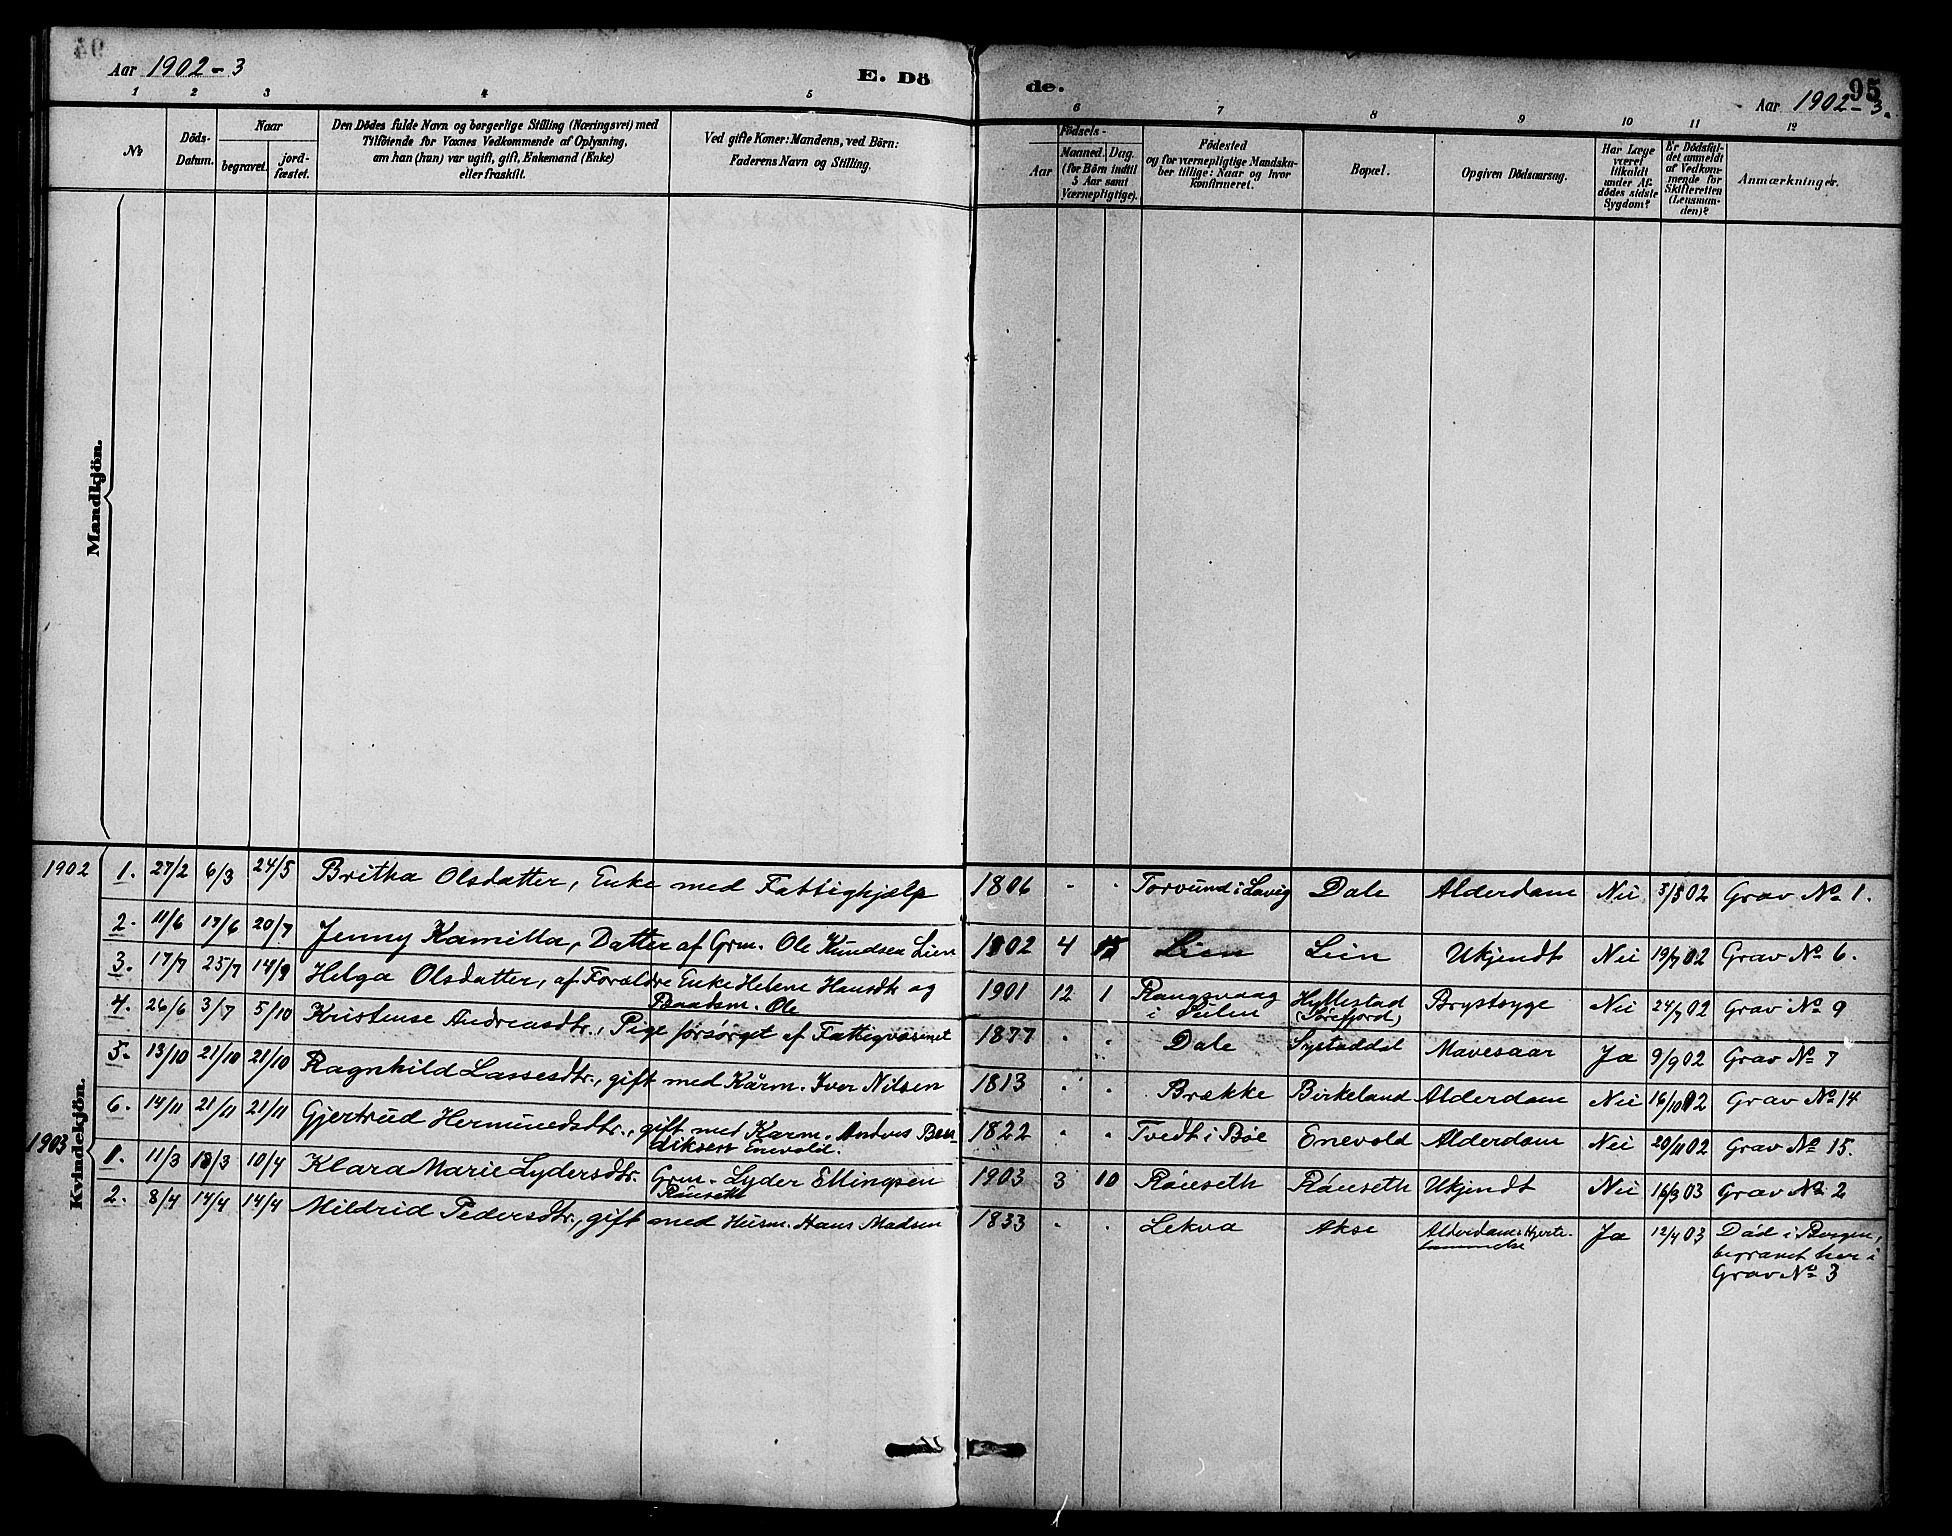 Aar 1902-3
E. Dö
de.
95
Aar 1902-3.
1 2 3 4 5 6 7 8 9 10 11 12
№
Döds-
Datum.
Naar
begravet.
jord-
fæstet.
Den Dödes fulde Navn og borgerlige Stilling (Næringsvei) med
Tilföiende for Voxnes Vedkommende af Oplysning,
om han (hun) var ugift, gift, Enkemand (Enke)
eller fraskilt.
Ved gifte Koner: Mandens, ved Börn:
Faderens Navn og Stilling.
Födsels-
Aar
Maaned. Dag.
(for Börn indtil
5 Aar samt
Værnepligtige).
Födested
og for værnepligtige Mandska-
ber tillige: Naar og hvor
konfirmeret.
Bopæl.
Opgiven Dödsaarsag.
Har Læge
været
tilkaldt
under Af-
dödes sidste
Sygdom?
Er Dödsfal-
det anmeldt
af Vedkom-
mende for
Skifteretten
(Lensman-
den)?
Anmærkninger.
Mandkjön.
Kvindekjön.
1902 1. 27/2 6/3 24/5 Britha Olsdatter, Enke med Fattighjælp 1806 - - Torvund i Lavig Dale Alderdom Nei 3/5 02 Grav No 1.
2. 11/6 17/6 20/7 Jenny Kamilla, Datter af Grm. Ole Knudsen Lien 1902 4 Lien Lien Ukjendt Nei 19/7 02 Grav No 6.
3. 17/7 25/7 14/9 Helga Olsdatter, af Forældre Enke Helene Hansdtr og
Baadsm. Ole 1901 12 1 Rangsvaag
i Sulen Hyllestad
(Sörefjord) Brystsyge Nei 24/7 02 Grav No 9
4. 26/6 3/7 5/10 Kristense Andreasdtr., Pige forsörget af Fattigvæsenet 1877 - - Dale Systaddal Mavesaar Ja 9/9 02 Grav No 7
5. 13/10 21/10 21/10 Ragnhild Lassesdtr., gift med Kårm. Iver Nilsen 1813 - - Brække Birkeland Alderdom Nei 16/10 02 Grav No 14
6. 14/11 21/11 21/11 Gjertrud Hermundsdtr., gift med Karm. Andres Ben
diksen Enevold. 1822 - - Tvedt i Böe Enevold Alderdom Nei 20/11 02 Grav No 15.
1903 1. 11/3 18/3 10/4 Klara Marie Lydersdtr. Grm. Lyder Ellingsen
Röiseth 1903 3 10 Röiseth Röiseth Ukjendt Nei 16/3 03 Grav No 2
2. 8/4 14/4 14/4 Mildrid Pedersdtr., gift med Husm. Hans Madsen 1833 - - Lekva Akse Alderdom: Hjerte-
lammelse Ja 12/4 03 Död i Bergen,
begravet her i
Grav No 3